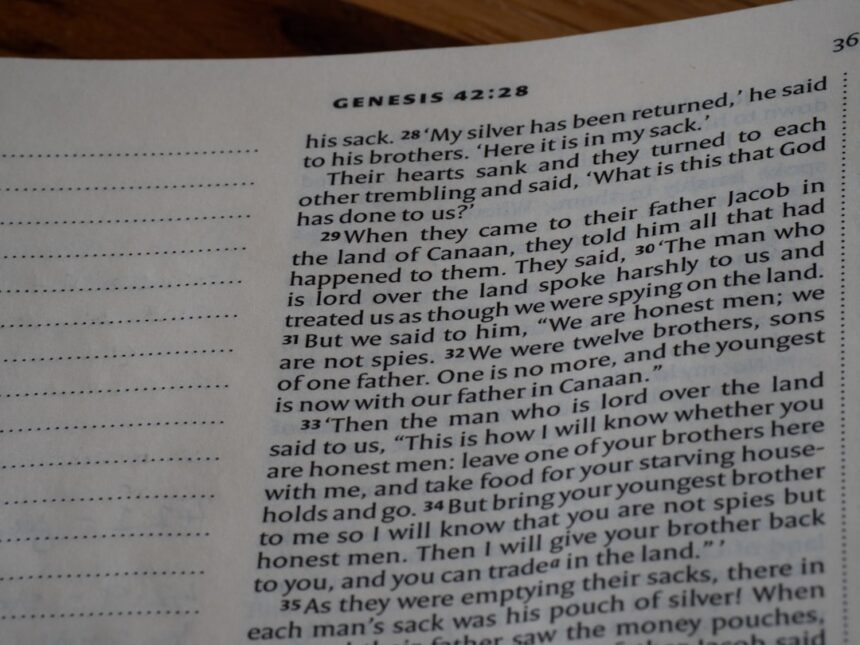 36
GENESIS 42:28
his sack. 28 ‘My silver has been returned,’ he said
to his brothers. ‘Here it is in my sack.’
Their hearts sank and they turned to each
other trembling and said, ‘What is this that God
has done to us?’
29 When they came to their father Jacob in
the land of Canaan, they told him all that had
happened to them. They said, 30 ‘The man who
is lord over the land spoke harshly to us and
treated us as though we were spying on the land.
31 But we said to him, “We are honest men; we
are not spies. 32 We were twelve brothers, sons
of one father. One is no more, and the youngest
is now with our father in Canaan.”
33 ‘Then the man who is lord over the land
said to us, “This is how I will know whether you
are honest men: leave one of your brothers here
with me, and take food for your starving house-
holds and go. 34 But bring your youngest brother
to me so I will know that you are not spies but
honest men. Then I will give your brother back
to you, and you can trade a in the land.” ’
35 As they were emptying their sacks, there in
each man’s sack was his pouch of silver! When
their father saw the money pouches,
Jacob said